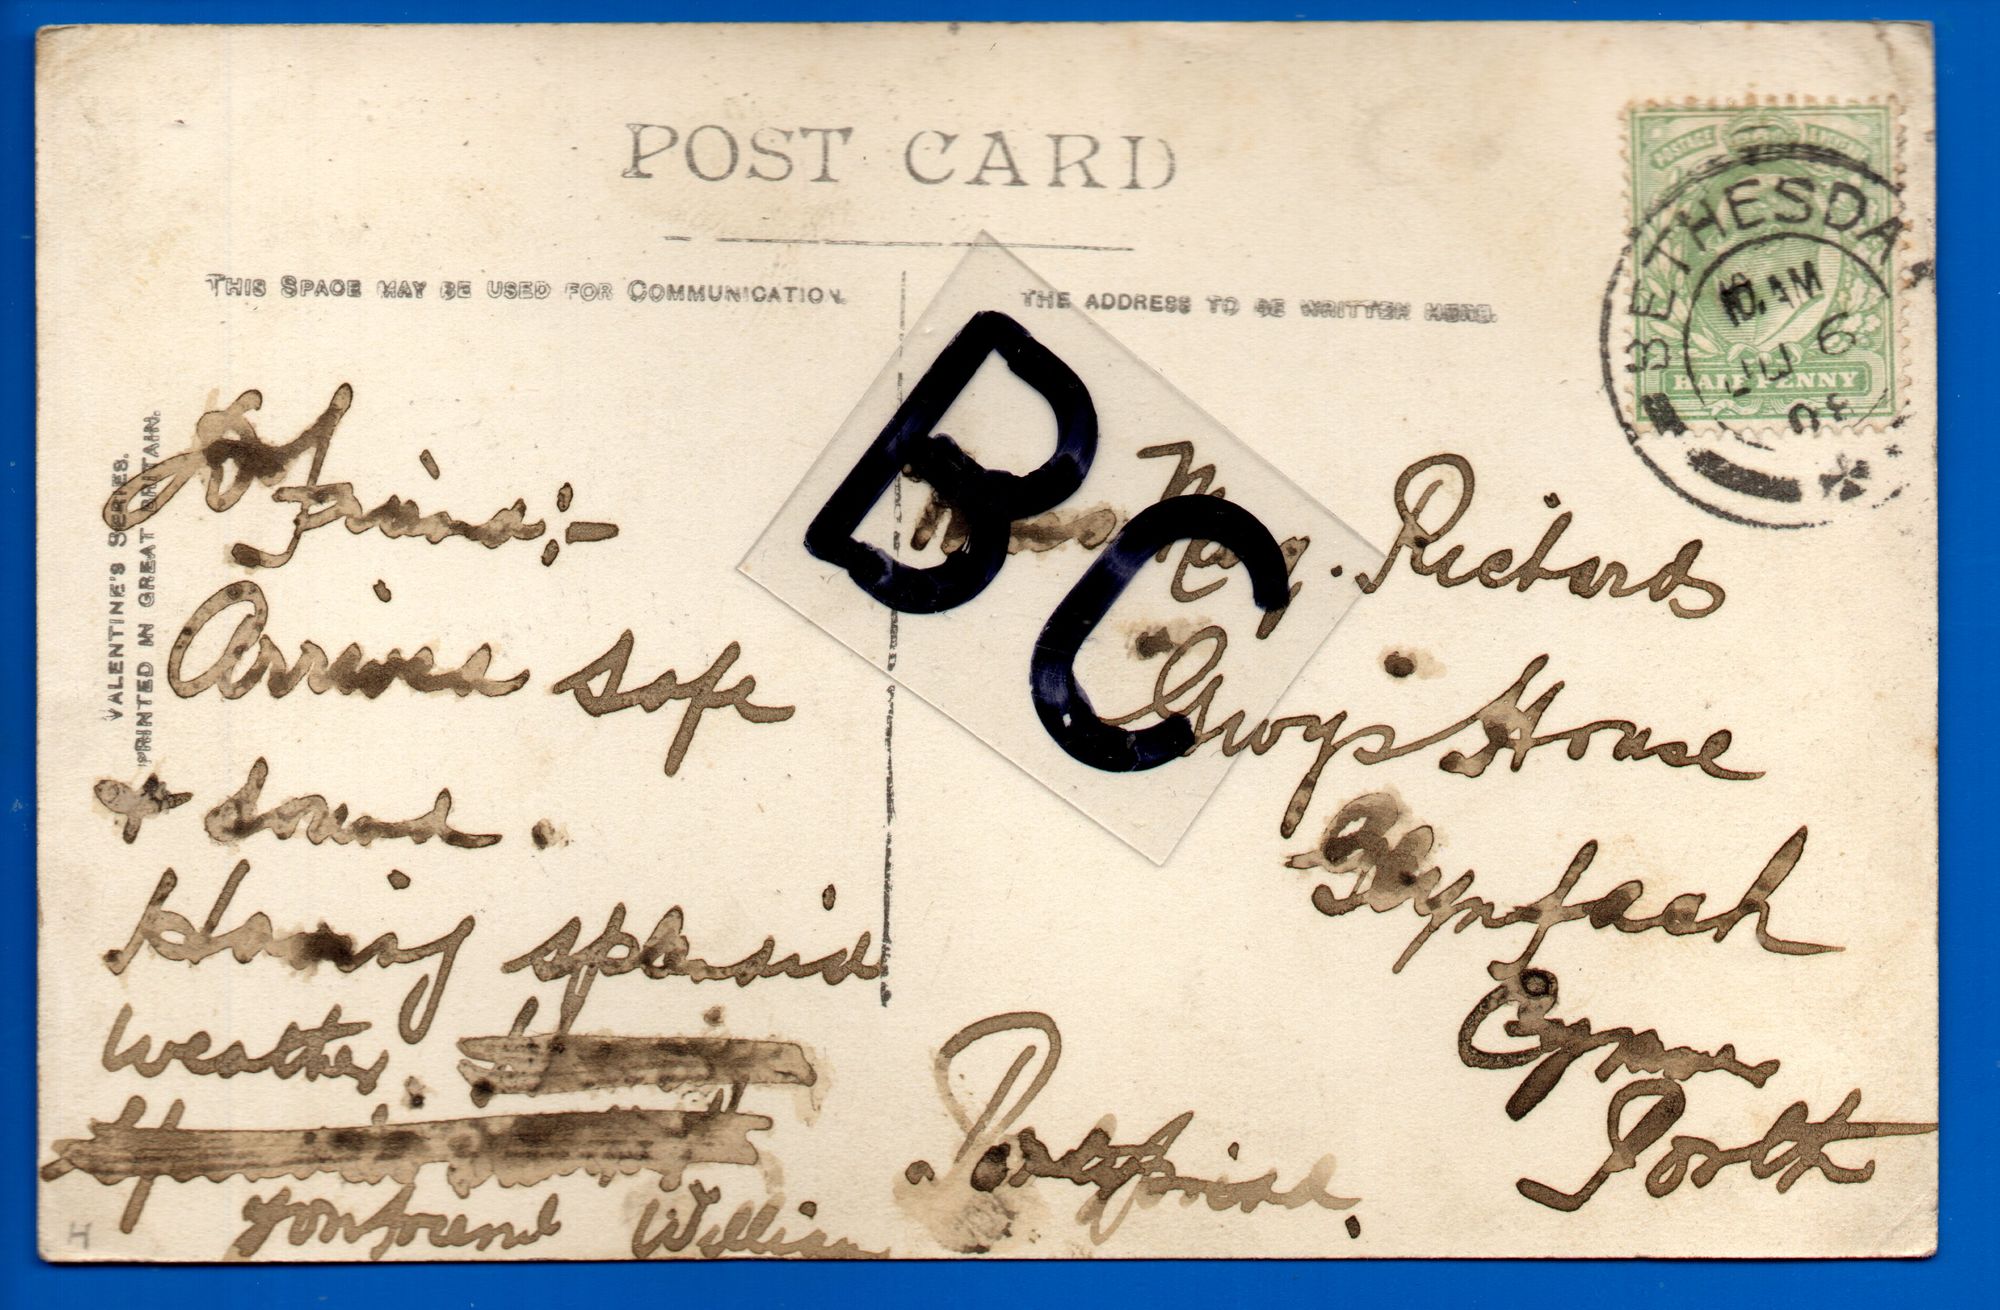 POST CARD
THIS SPACE MAY BE USED FOR COMMUNICATION.
THE ADDRESS TO BE WRITTEN HERE.
POSTAGE REVENUE
HALF PENNY
BETHESDA
10.AM
JU 6
08
VALENTINE'S SERIES.
PRINTED IN GREAT BRITAIN.
BC
friend:-
Arrived safe
+ sound.
Having splendid
weather.
William
Mary. Richards
House
Glynfach
Cymmer
Porth
H